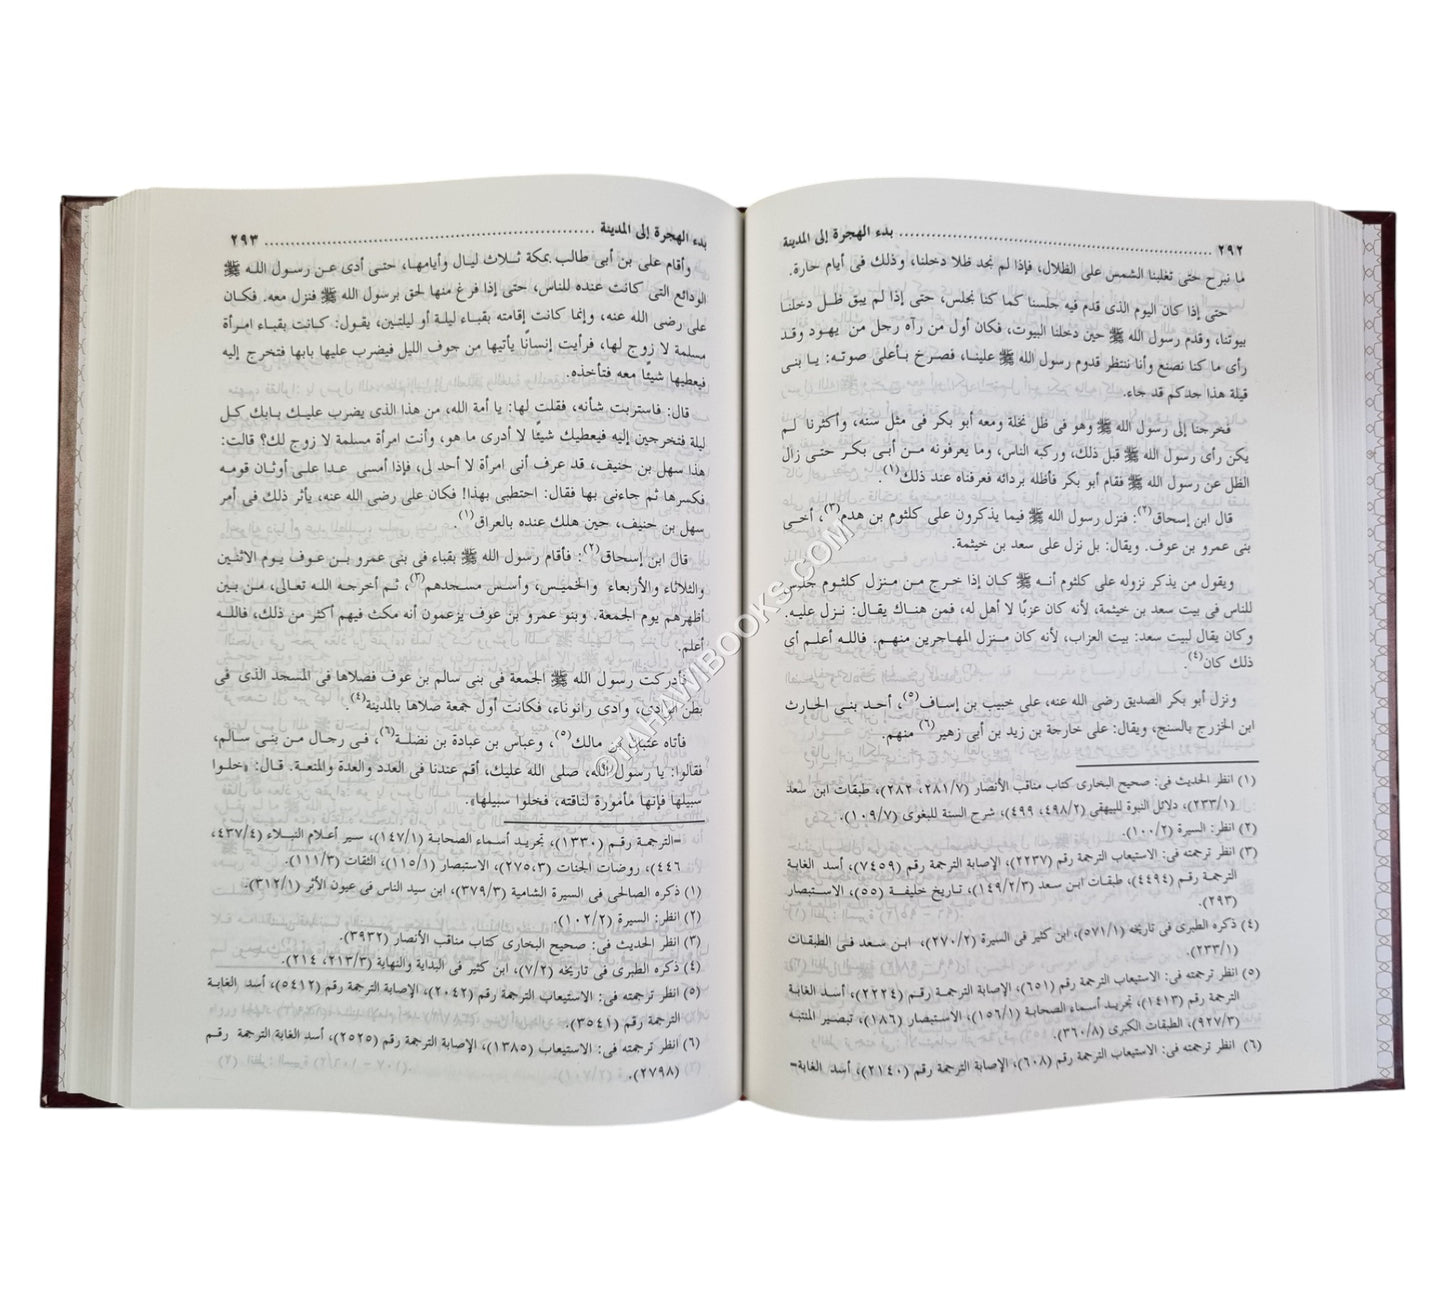 ٢٩٢ ........ بدء الهجرة إلى المدينة
ما نبرح حتى تغلبنا الشمس على الظلال، فإذا لم نجد ظلا دخلنا، وذلك فى أيام حارة.
حتى إذا كان اليوم الذى قدم فيه جلسنا كما كنا نجلس، حتى إذا لم يبق ظل دخلنا
بيوتنا، وقدم رسول الله ﷺ حين دخلنا البيوت، فكان أول من رآه رجل من يهود وقد
رأى ما كنا نصنع وأنا ننتظر قدوم رسول الله ﷺ علينا، فصرخ بأعلى صوته: يا بنى
قيلة هذا جدكم قد جاء.
فخرجنا إلى رسول الله ﷺ وهو فى ظل نخلة ومعه أبو بكر فى مثل سنه، وأكثرنا لم
يكن رأى رسول الله ﷺ قبل ذلك، وركبه الناس، وما يعرفونه من أبى بكر حتى زال
الظل عن رسول الله ﷺ فقام أبو بكر فأظله بردائه فعرفناه عند ذلك(١).
قال ابن إسحاق(٢): فنزل رسول الله ﷺ فيما يذكرون على كلثوم بن هدم(٣)، أخى
بنى عمرو بن عوف. ويقال: بل نزل على سعد بن خيثمة.
ويقول من يذكر نزوله على كلثوم أنه ﷺ كان إذا خرج من منزل كلثوم جلس
للناس فى بيت سعد بن خيثمة، لأنه كان عزبًا لا أهل له، فمن هناك يقال: نزل عليه.
وكان يقال لبيت سعد: بيت العزاب، لأنه كان منزل المهاجرين منهم. فالله أعلم أى
ذلك كان(٤).
ونزل أبو بكر الصديق رضى الله عنه، على خبيب بن إساف(٥)، أحد بنى الحارث
ابن الخزرج بالسنح، ويقال: على خارجة بن زيد بن أبى زهير(٦) منهم.
(١) انظر الحديث فى: صحيح البخارى كتاب مناقب الأنصار (٢٨١/٧، ٢٨٢)، طبقات ابن سعد
(٢٣٣/١)، دلائل النبوة للبيهقى (٤٩٨/٢، ٤٩٩)، شرح السنة للبغوى (١٠٩/٧).
(٢) انظر: السيرة (١٠٠/٢).
(٣) انظر ترجمته فى: الاستيعاب الترجمة رقم (٢٢٣٧)، الإصابة الترجمة رقم (٧٤٥٩)، أسد الغابة
الترجمة رقم (٤٤٩٤)، طبقات ابن سعد (١٤٩/٢/٣)، تاريخ خليفة (٥٥)، الاستبصار
(٢٩٣).
(٤) ذكره الطبرى فى تاريخه (٥٧١/١)، ابن كثير فى السيرة (٢٧٠/٢)، ابن سعد فى الطبقات
(٢٣٣/١).
(٥) انظر ترجمته فى: الاستيعاب الترجمة رقم (٦٥١)، الإصابة الترجمة رقم (٢٢٢٤)، أسد الغابة
الترجمة رقم (١٤١٣)، تجريد أسماء الصحابة (١٥٦/١)، الاستبصار (١٨٦)، تبصير المنتبه
(٩٢٧/٣)، الطبقات الكبرى (٣٦٠/٨).
(٦) انظر ترجمته فى: الاستيعاب الترجمة رقم (٦٠٨)، الإصابة الترجمة رقم (٢١٤٠)، أسد الغابة=
بدء الهجرة إلى المدينة ........ ٢٩٣
وأقام على بن أبى طالب بمكة ثلاث ليال وأيامها، حتى أدى عن رسول الله ﷺ
الودائع التى كانت عنده للناس، حتى إذا فرغ منها لحق برسول الله ﷺ فنزل معه. فكان
على رضى الله عنه، وإنما كانت إقامته بقباء ليلة أو ليلتين، يقول: كانت بقباء امرأة
مسلمة لا زوج لها، فرأيت إنسانًا يأتيها من جوف الليل فيضرب عليها بابها فتخرج إليه
فيعطيها شيئًا معه فتأخذه.
قال: فاستربت شأنه، فقلت لها: يا أمة الله، من هذا الذى يضرب عليك بابك كل
ليلة فتخرجين إليه فيعطيك شيئًا لا أدرى ما هو، وأنت امرأة مسلمة لا زوج لك؟ قالت:
هذا سهل بن حنيف، قد عرف أنى امرأة لا أحد لى، فإذا أمسى عدا على أوثان قومه
فكسرها ثم جاءنى بها فقال: احتطبى بهذا! فكان على رضى الله عنه، يأثر ذلك فى أمر
سهل بن حنيف، حين هلك عنده بالعراق(١).
قال ابن إسحاق(٢): فأقام رسول الله ﷺ بقباء فى بنى عمرو بن عوف يوم الاثنين
والثلاثاء والأربعاء والخميس، وأسس مسجدهم(٣)، ثم أخرجه الله تعالى، من بين
أظهرهم يوم الجمعة. وبنو عمرو بن عوف يزعمون أنه مكث فيهم أكثر من ذلك، فالله
أعلم.
فأدركت رسول الله ﷺ الجمعة فى بنى سالم بن عوف فصلاها فى المسجد الذى فى
بطن الوادى، وادى رانوناء، فكانت أول جمعة صلاها بالمدينة(٤).
فأتاه عتبان بن مالك(٥)، وعباس بن عبادة بن نضلة(٦)، فى رجال من بنى سالم،
فقالوا: يا رسول الله، صلى الله عليك، أقم عندنا فى العدد والعدة والمنعة. قال: «خلوا
سبيلها فإنها مأمورة لناقته، فخلوا سبيلها».
=الترجمة رقم (١٣٣٠)، تجريد أسماء الصحابة (١٤٧/١)، سير أعلام النبلاء (٤٣٧/٤،
٤٤٦)، روضات الجنات (٢٧٥،٣)، الاستبصار (١١٥/١)، الثقات (١١١/٣).
(١) ذكره الصالحى فى السيرة الشامية (٣٧٩/٣)، ابن سيد الناس فى عيون الأثر (٣١٢/١).
(٢) انظر: السيرة (١٠٢/٢).
(٣) انظر الحديث فى: صحيح البخارى كتاب مناقب الأنصار (٣٩٣٢).
(٤) ذكره الطبرى فى تاريخه (٧/٢)، ابن كثير فى البداية والنهاية (٢١٣/٣، ٢١٤).
(٥) انظر ترجمته فى: الاستيعاب الترجمة رقم (٢٠٤٢)، الإصابة الترجمة رقم (٥٤١٢)، أسد الغابة
الترجمة رقم (٣٥٤١).
(٦) انظر ترجمته فى: الاستيعاب (١٣٨٥)، الإصابة الترجمة رقم (٢٥٢٥)، أسد الغابة الترجمة رقم
(٢٧٩٨).
©TAHAWIBOOKS.COM